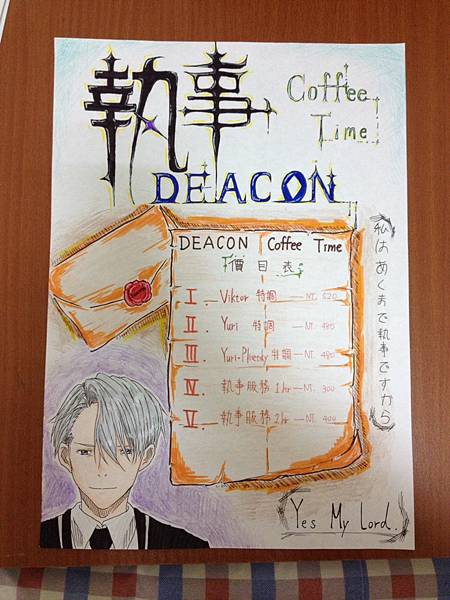 執事
Coffee
Time
DEACON
DEACON Coffee Time
「價目表」
I. Viktor 特調 — NT. 520
II. Yuri 特調 — NT. 490
III. Yuri·Plisetsky 特調 — NT. 490
IV. 執事服務 1hr — NT. 300
V. 執事服務 2hr — NT. 400
私はあくまで執事ですから
Yes My Lord.